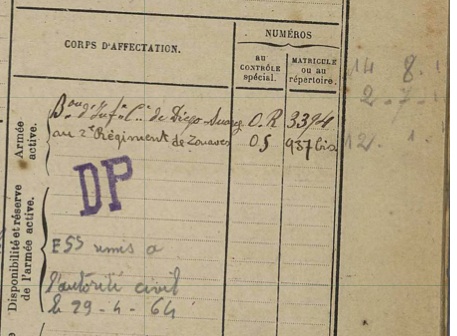 CORPS D'AFFECTATION.
NUMÉROS
AU
CONTRÔLE
spécial.
MATRICULE
ou au
répertoire.
Armée
active.
Disponibilité et réserve
de l'armée active.
de Diego-Suarez O.R 3394
au 2e Régiment de Zouaves OS 937 bis
DP
ESS remis a
l'autorité civil
le 29-4-64
14 8
2-7-1
12. 1.